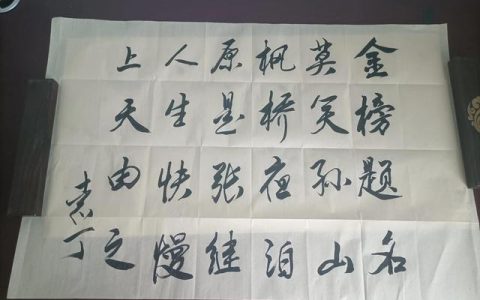 金榜题名
莫笑孙山
枫桥夜泊
原是张继
人生快慢
上天由之